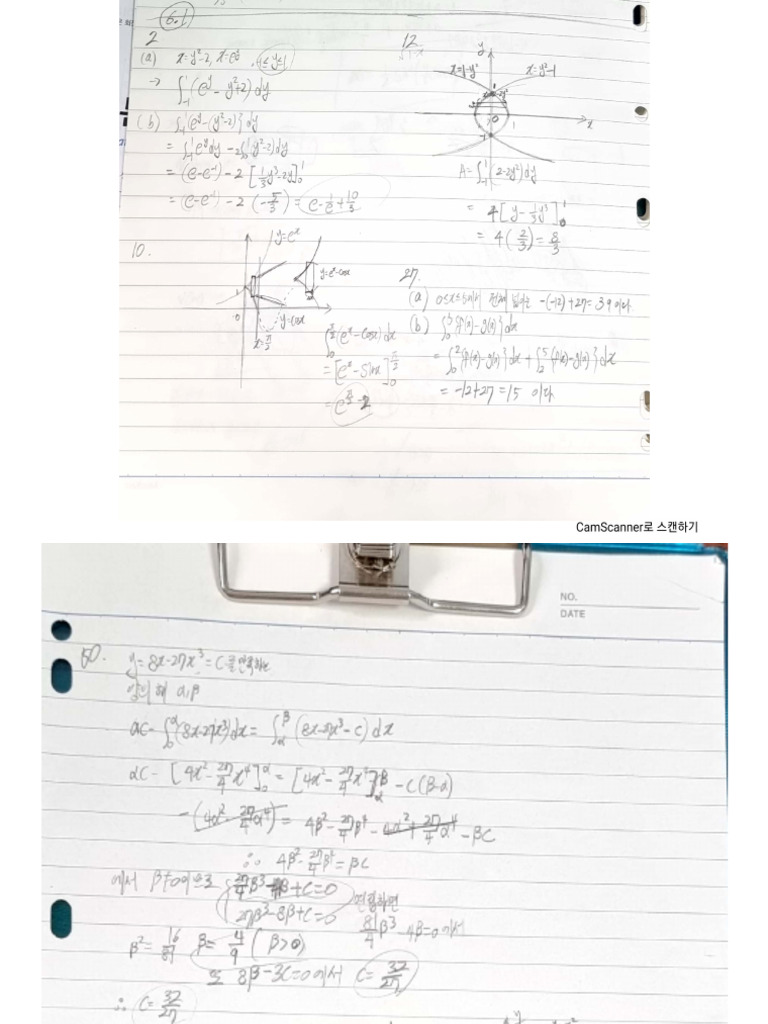 6.1
2
(a) x=y²-2, x=e^y, -1≤y≤1
→ ∫₋₁¹ (e^y - y²+2) dy
(b) ∫₋₁¹ {e^y-(y²-2)} dy
= ∫₋₁¹ e^y dy - 2∫₀¹ (y²-2) dy
= (e-e⁻¹) - 2 [⅓y³-2y]₀¹
= (e-e⁻¹) - 2 (-5/3) = e - 1/e + 10/3
12
y
x=1-y²
x=y²-1
x
0
1
A = ∫₋₁¹ (2-2y²) dy
= 4 [y - ⅓y³]₀¹
= 4 (2/3) = 8/3
10.
y=e^x
y=e^x-cosx
1
0
y=cosx
x=π/2
∫₀^(π/2) (e^x-cosx) dx
= [e^x - sinx]₀^(π/2)
= e^(π/2) - 2
27.
(a) 0≤x≤5에서 전체 넓이는 -(-12)+27=39이다.
(b) ∫₀⁵ {f(x)-g(x)} dx
= ∫₀² {f(x)-g(x)} dx + ∫₂⁵ {f(x)-g(x)} dx
= -12+27 = 15 이다
CamScanner로 스캔하기
NO.
DATE
50. y=8x-27x³=C를 만족하는
양의 해 α,β
αC - ∫₀^α (8x-27x³) dx = ∫_α^β (8x-27x³-C) dx
αC - [4x² - 27/4 x⁴]₀^α = [4x² - 27/4 x⁴]_α^β - C(β-α)
-(4α² - 27/4 α⁴) = 4β² - 27/4 β⁴ - 4α² + 27/4 α⁴ - βC
∴ 4β² - 27/4 β⁴ = βC
에서 β≠0이므로 27/4 β³ - 4β + C = 0
27β³ - 8β + C = 0 연립하면
81/4 β³ - 4β = 0 에서
β² = 16/81 β = 4/9 (β>0)
또 8β - 3C = 0에서 C = 32/27
∴ C = 32/27